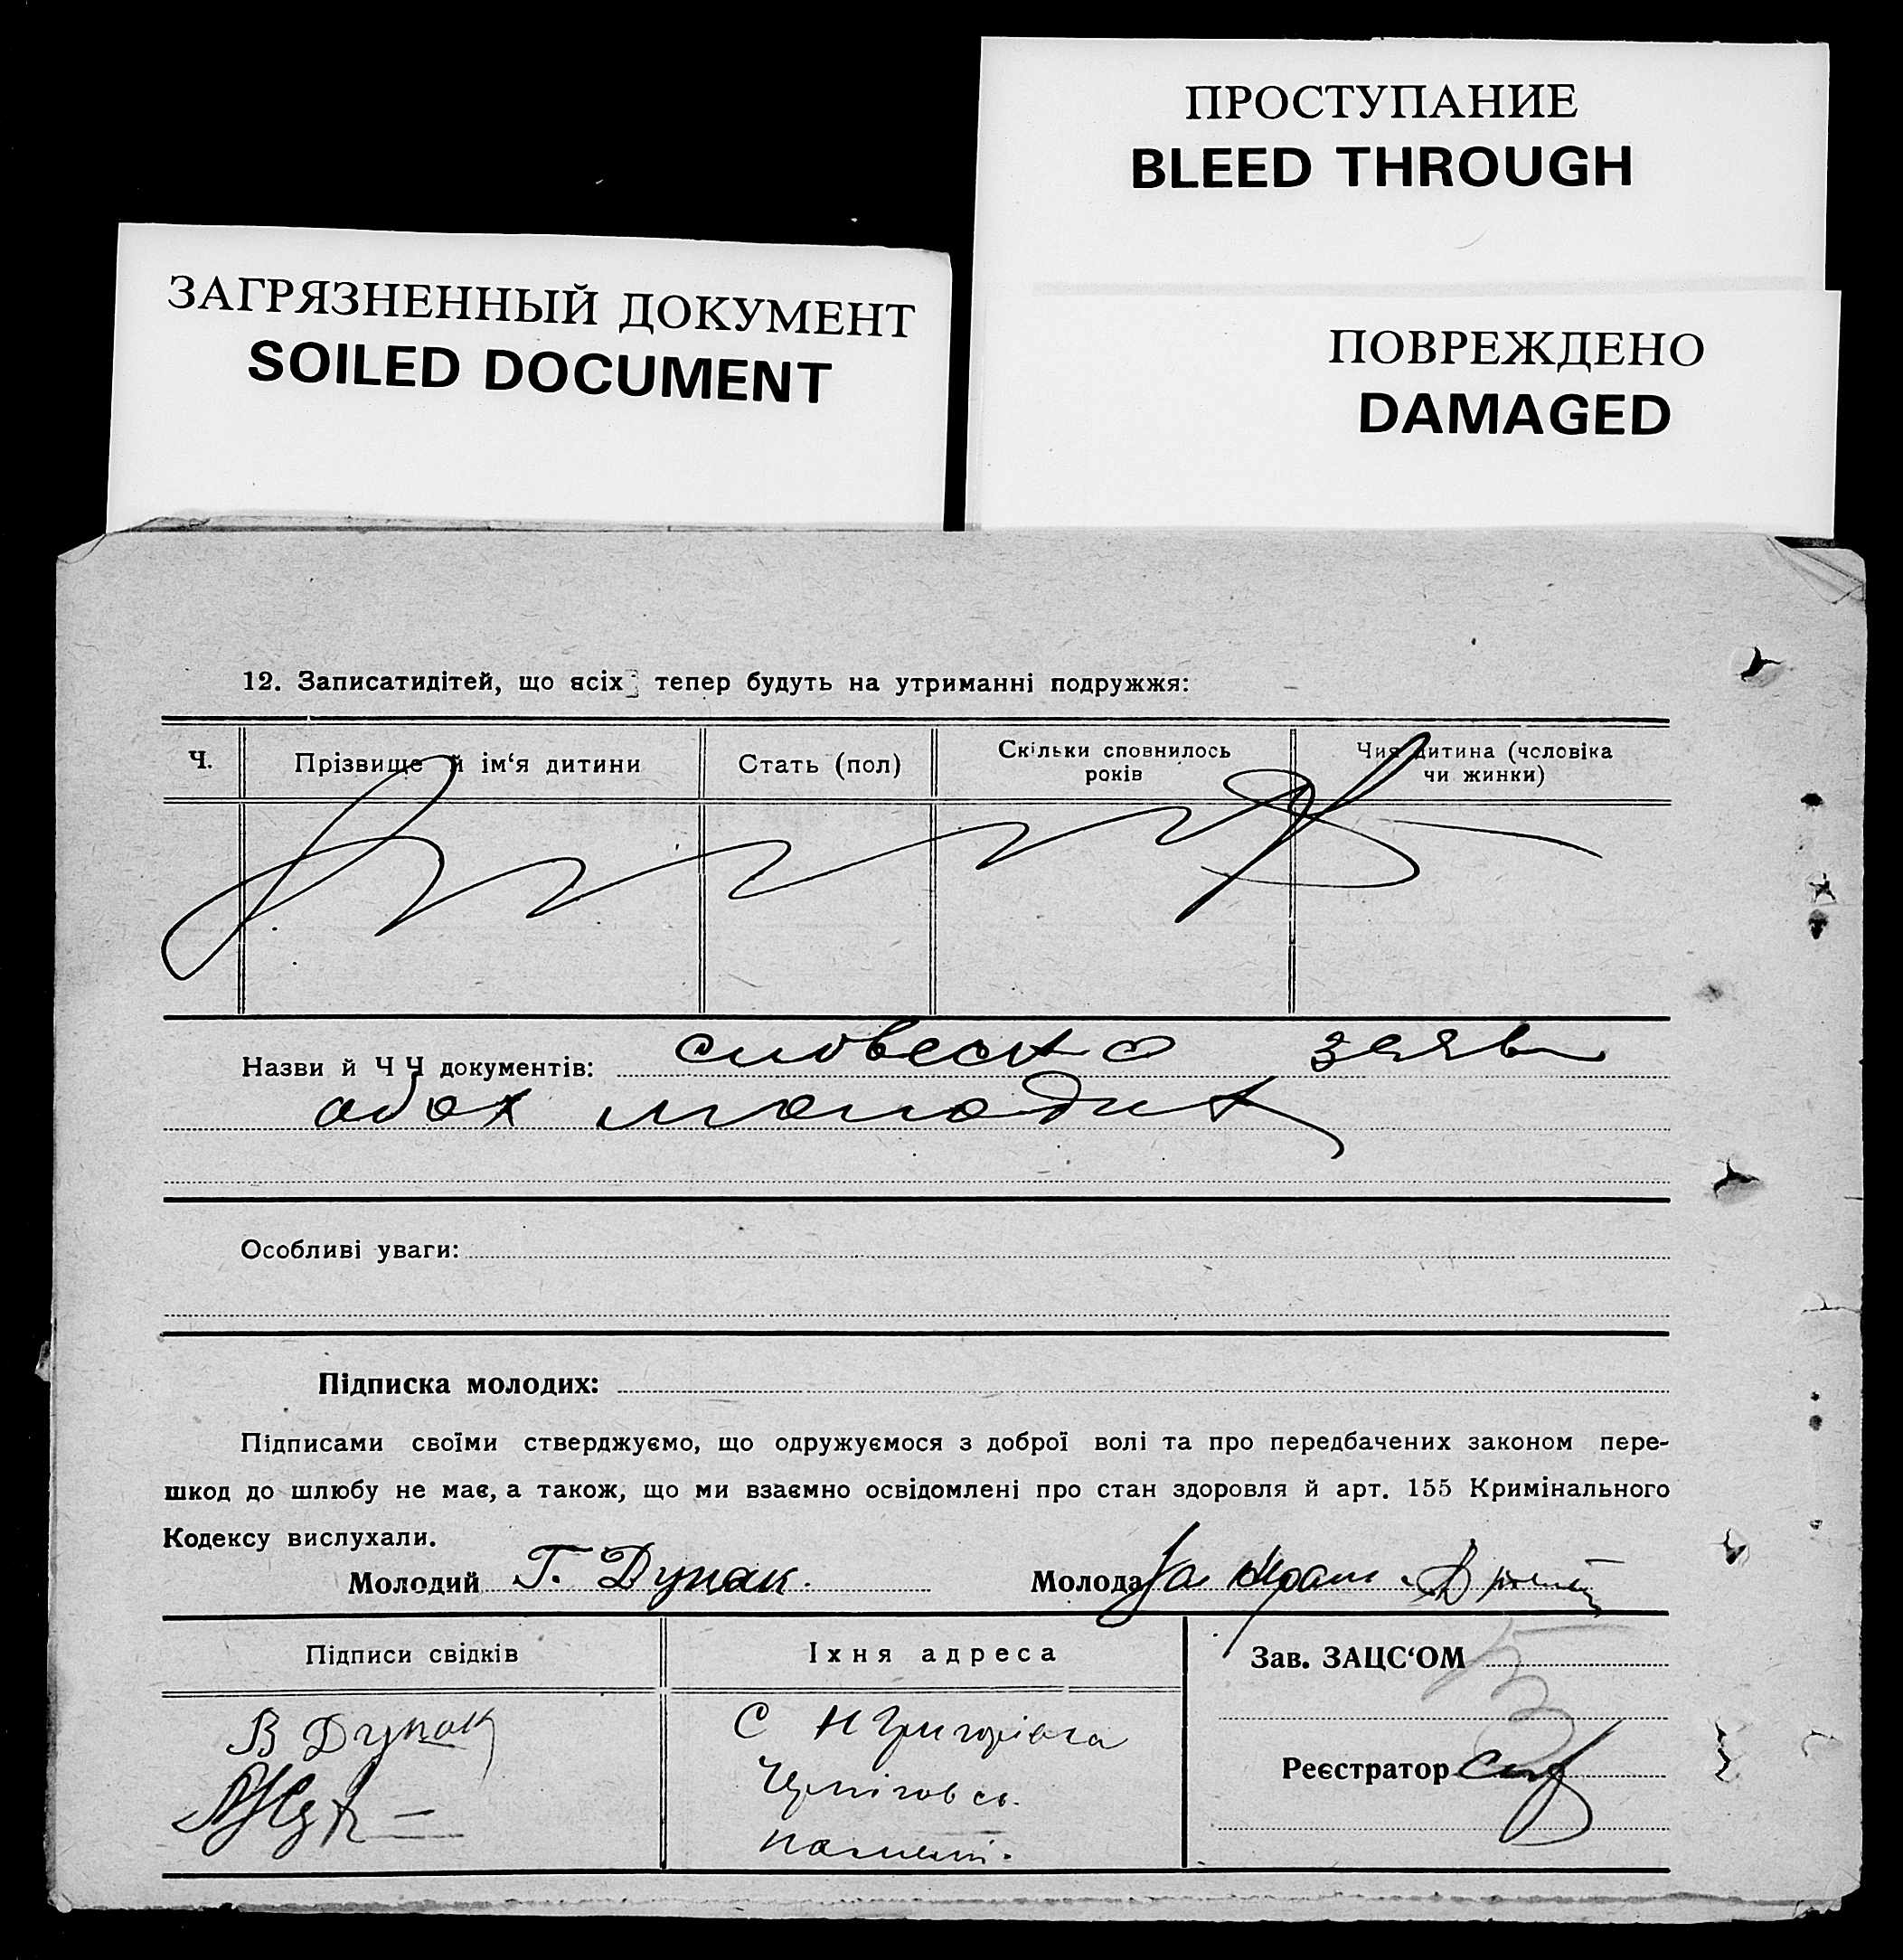 ПРОСТУПАНИЕ
BLEED THROUGH
ЗАГРЯЗНЕННЫЙ ДОКУМЕНТ
SOILED DOCUMENT
ПОВРЕЖДЕНО
DAMAGED
12. Записатидітей, що всіх тепер будуть на утриманні подружжя:
Ч. Прізвище й ім‘я дитини Стать (пол) Скільки сповнилось років Чия дитина (чоловіка чи жинки)
Назви й Ч Ч документів: словесно заяв
обох молодих
Особливі уваги:
Підписка молодих:
Підписами своїми стверджуємо, що одружуємося з доброї волі та про передбачених законом пере-
шкод до шлюбу не має, а також, що ми взаємно освідомлені про стан здоровля й арт. 155 Кримінального
Кодексу вислухали.
Молодий Г. Дупак. Молода
Підписи свідків Їхня адреса Зав. ЗАЦС‘ОМ
В Дупак С Н Григорівка
Реєстратор